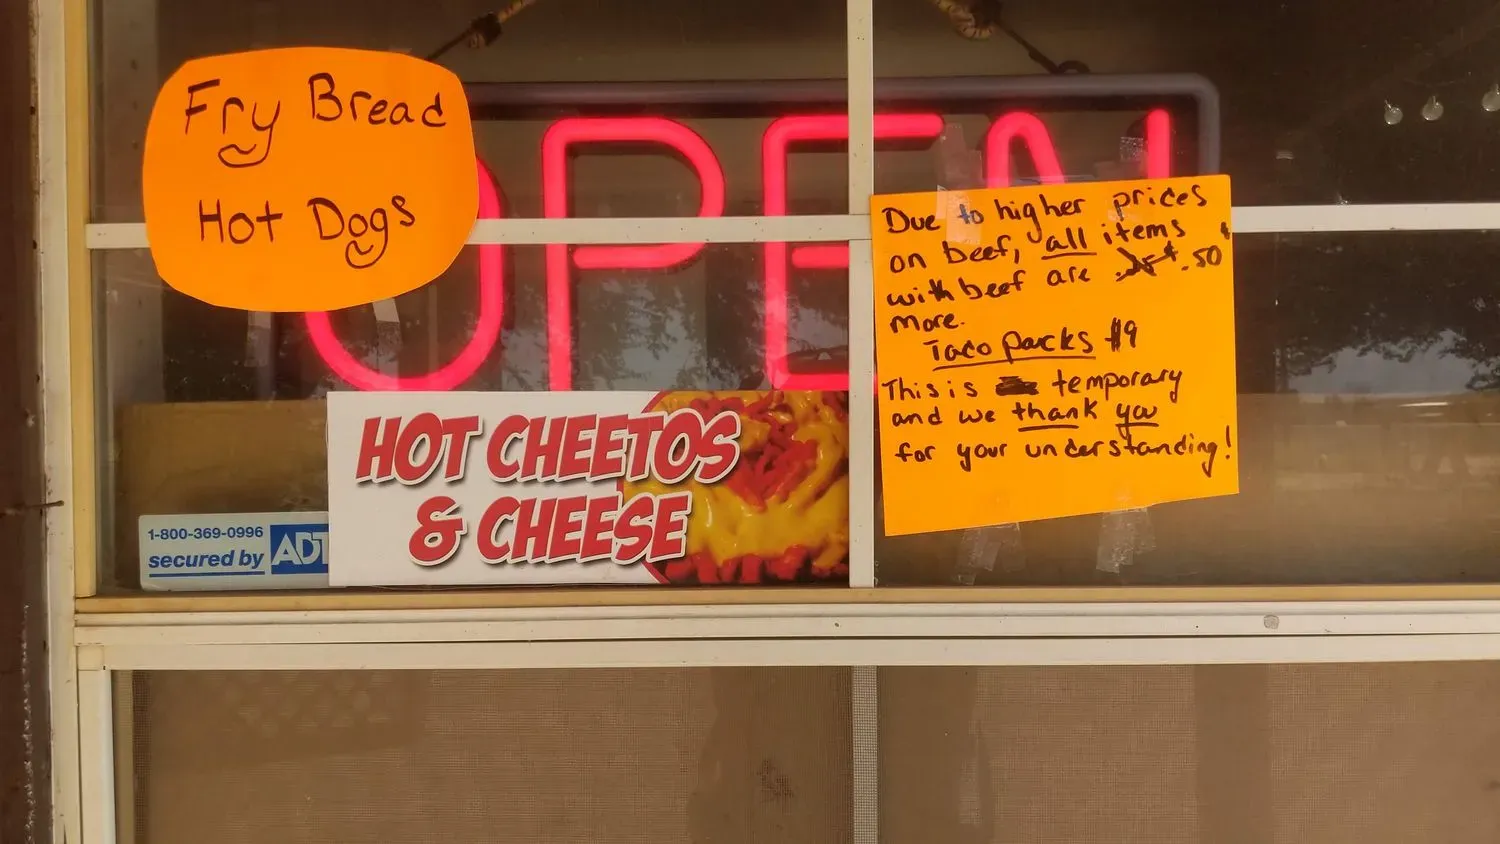 Fry Bread
Hot Dogs
OPEN
HOT CHEETOS
& CHEESE
1-800-369-0996
secured by ADT
Due to higher prices
on beef, all items
with beef are .50¢
more.
Taco Packs $9
This is temporary
and we thank you
for your understanding!